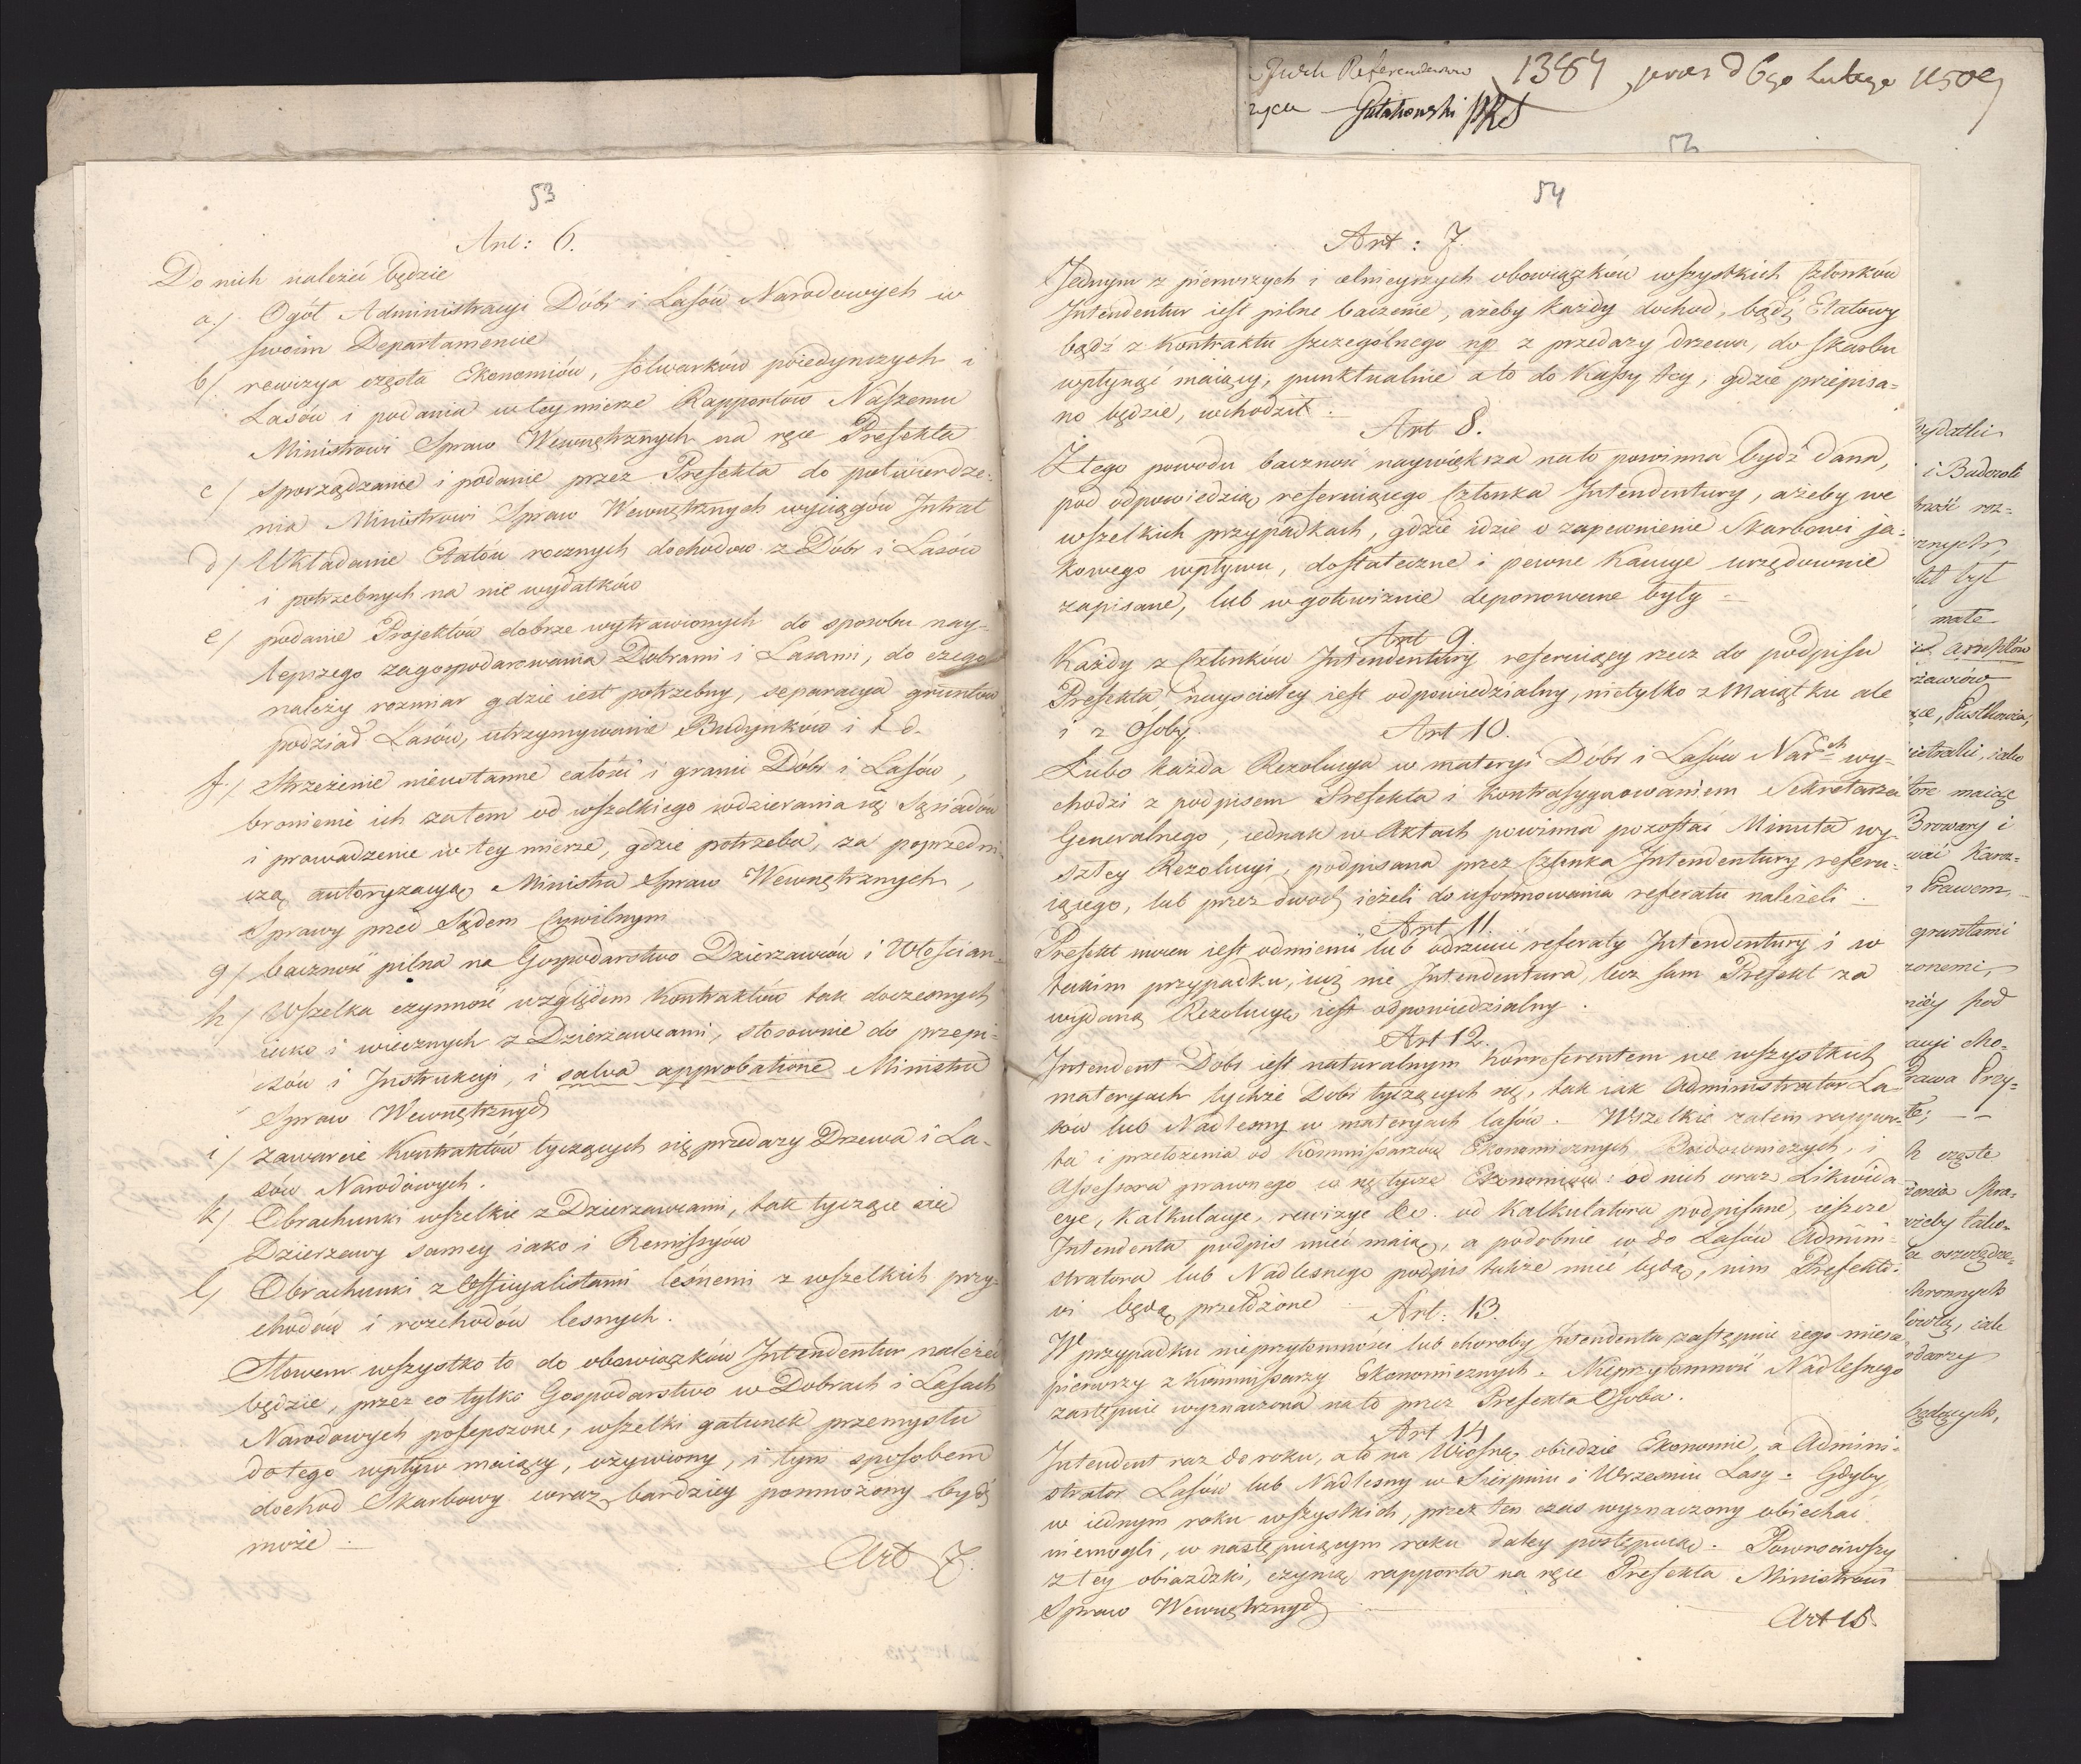 1384 praes d 6go Lutego 1809
Gutakowski PRS
53
Art: 6.
Do nich należeć będzie
a./ Ogół Administracyi Dóbr i Lasów Narodowych w
swoim Departamencie
b/ rewizya częsta Ekonomiów, folwarków poiedynczych i
Lasów i podania w tey mierze Rapportów Naszemu
Ministrowi Spraw Wewnętrznych na ręce Prefekta
c/ sporządzanie i podanie przez Prefekta do potwierdze-
nia Ministrowi Spraw Wewnętrznych wyciągów Intrat
d/ Układanie Etatów rocznych dochodow z Dóbr i Lasów
i potrzebnych na nie wydatków
e/ podanie Projektów dobrze wytrawionych do sposobu nay-
lepszego zagospodarowania Dobrami i Lasami, do czego
należy rozmiar gdzie iest potrzebny, separacya gruntów
podział Lasów, utrzymywanie Budynków i t d.
f/ strzeżenie nieustanne całości i granic Dóbr i Lasów,
bronienie ich zatem od wszelkiego wdzierania się Sąsiadów
i prowadzenie w tey mierze, gdzie potrzeba, za poprzedni-
czą autoryzacyą Ministra Spraw Wewnętrznych,
Sprawy przed Sądem Cywilnym
g/ baczność pilna na Gospodarstwo Dzierzawców i Włościan
h/ Wszelka czynność względem Kontraktów tak doczesnych
iako i wiecznych z Dzierżawcami, stosownie do przepi-
sów i Instrukcyi, i salva approbatione Ministra
Spraw Wewnętrznych
i/ zawarcie Kontraktów tyczących się przedaży Drzewa i La-
sów Narodowych.
k/ Obrachunki wszelkie z Dzierzawcami, tak tyczące się
Dzierzawy samey iako i Remissyów
l/ Obrachunki z Officyalistami leśnemi z wszelkich przy-
chodów i rozchodów lesnych.
Słowem wszystko to do obowiązków Intendentur należeć
będzie, przez co tylko Gospodarstwo w Dobrach i Lasach
Narodowych polepszone, wszelki gatunek przemysłu
do tego wpływ maiący, ożywiony, i tym sposobem
dochod Skarbowy coraz bardziey pomnożony bydź
może
Art 7.
54
Art: 7.
Jednym z pierwszych i celnieyszych obowiązków wszystkich Członków
Intendentur iest pilne baczenie, ażeby każdy dochod, bądź Etatowy
bądź z Kontraktu szczególnego np z przedaży drzewa, do skarbu
wpłynąć maiący, punktualnie a to do Kassy tey, gdzie przepisa-
no będzie, wchodził.
Art 8.
Z tego powodu baczność naywiększa na to powinna bydź dana,
pod odpowiedzią referuiącego Członka Intendentury, ażeby we
wszelkich przypadkach, gdzie idzie o zapewnienie Skarbowi ja-
kowego wpływu, dostateczne i pewne Kaucye urzędownie
zapisane, lub w gotowiznie deponowane były
Art 9.
Każdy z Członków Intendentury referuiący rzecz do podpisu
Prefekta, nayscisley iest odpowiedzialny, nietylko z Maiątku ale
i z Osoby.
Art 10.
Lubo każda Rezolucya w materyi Dóbr i Lasów Narch wy-
chodzi z podpisem Prefekta i Kontrasygnowaniem Sekretarza
Generalnego, iednak w Aktach powinna pozostać Minuta wy-
szłey Rezolucyi, podpisana przez Członka Intendentury referu-
iącego, lub przez dwóch ieżeli do uformowania referatu należeli
Art 11.
Prefekt mocen iest odmienić lub odrzucić referaty Intendentury i w
takim przypadku, iuż nie Intendentura, lecz sam Prefekt za
wydaną Rezolucyą iest odpowiedzialny.
Art 12.
Intendent Dobr iest naturalnym Korreferentem we wszystkich
materyach tychże Dobr tyczących się, tak iak Administrator La-
sów lub Nadlesny w materyach lasów. Wszelkie zatem rapor-
ta i przełożenia od Kommissarzów Ekonomicznych Budowniczych, i
Assessora prawnego co się tycze Ekonomiów: od nich oraz Likwida
cye, Kalkulacye, rewizye &c. od Kalkulatora podpisane, ieszcze
Intendenta podpis mieć maią, a podobnie co do Lasów Admini-
stratora lub Nadlesnego podpis także mieć będą, nim Prefekto-
wi będą przełożone
Art: 13.
W przypadku nieprzytomności lub choroby Intendenta zastępuie iego mieysce
pierwszy z Kommissarzy Ekonomicznych. Nieprzytomność Nadlesnego
zastępuie wyznaczona na to przez Prefekta Osoba.
Art 14
Intendent raz do roku, a to na Wiosnę obiedzie Ekonomie, a Admini-
strator Lasów lub Nadlesny w Sierpniu i Wrześniu Lasy. Gdyby
w iednym roku wszystkich, przez ten czas wyznaczony obiechać
niemogli, w następuiącym roku daley postępuią. Powrociwszy
z tey obiazdzki, czynią rapporta na ręce Prefekta Ministrowi
Spraw Wewnętrznych
Art 15.
wydatki
i Budowli
mate
gruntami
pod
Prawem,
maiąc
Browary i
częste